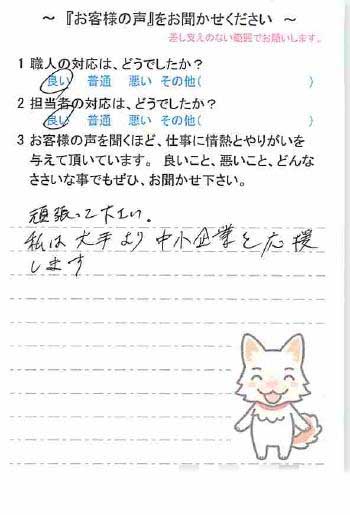 ～ 『お客様の声』をお聞かせください ～
差し支えのない範囲でお願いします。
1 職人の対応は、どうでしたか？
良い 普通 悪い その他( )
2 担当者の対応は、どうでしたか？
良い 普通 悪い その他( )
3 お客様の声を聞くほど、仕事に情熱とやりがいを
与えて頂いています。 良いこと、悪いこと、どんな
ささいな事でもぜひ、お聞かせ下さい。
頑張って下さい。
私は大手より中小企業を応援
します